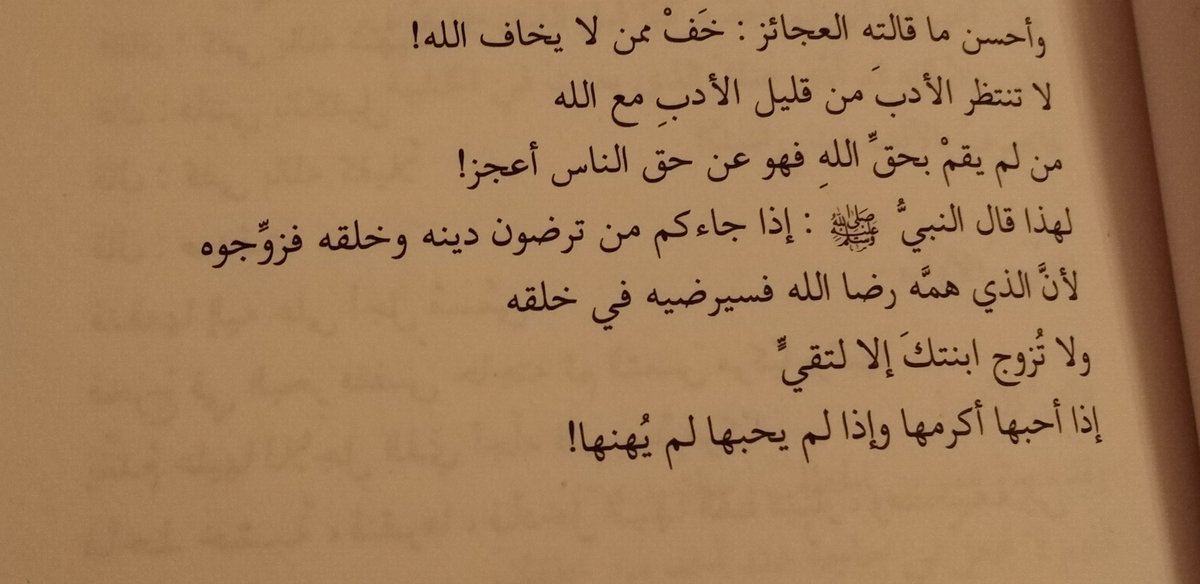 وأحسن ما قالته العجائز : خَفْ ممن لا يخاف الله!
لا تنتظر الأدبَ من قليل الأدبِ مع الله
من لم يقمْ بحقِّ اللهِ فهو عن حق الناس أعجز!
لهذا قال النبيُّ ﷺ : إذا جاءكم من ترضون دينه وخلقه فزوِّجوه
لأنَّ الذي همَّه رضا الله فسيرضيه في خلقه
ولا تُزوج ابنتكَ إلا لتقيٍّ
إذا أحبها أكرمها وإذا لم يحبها لم يُهنها!